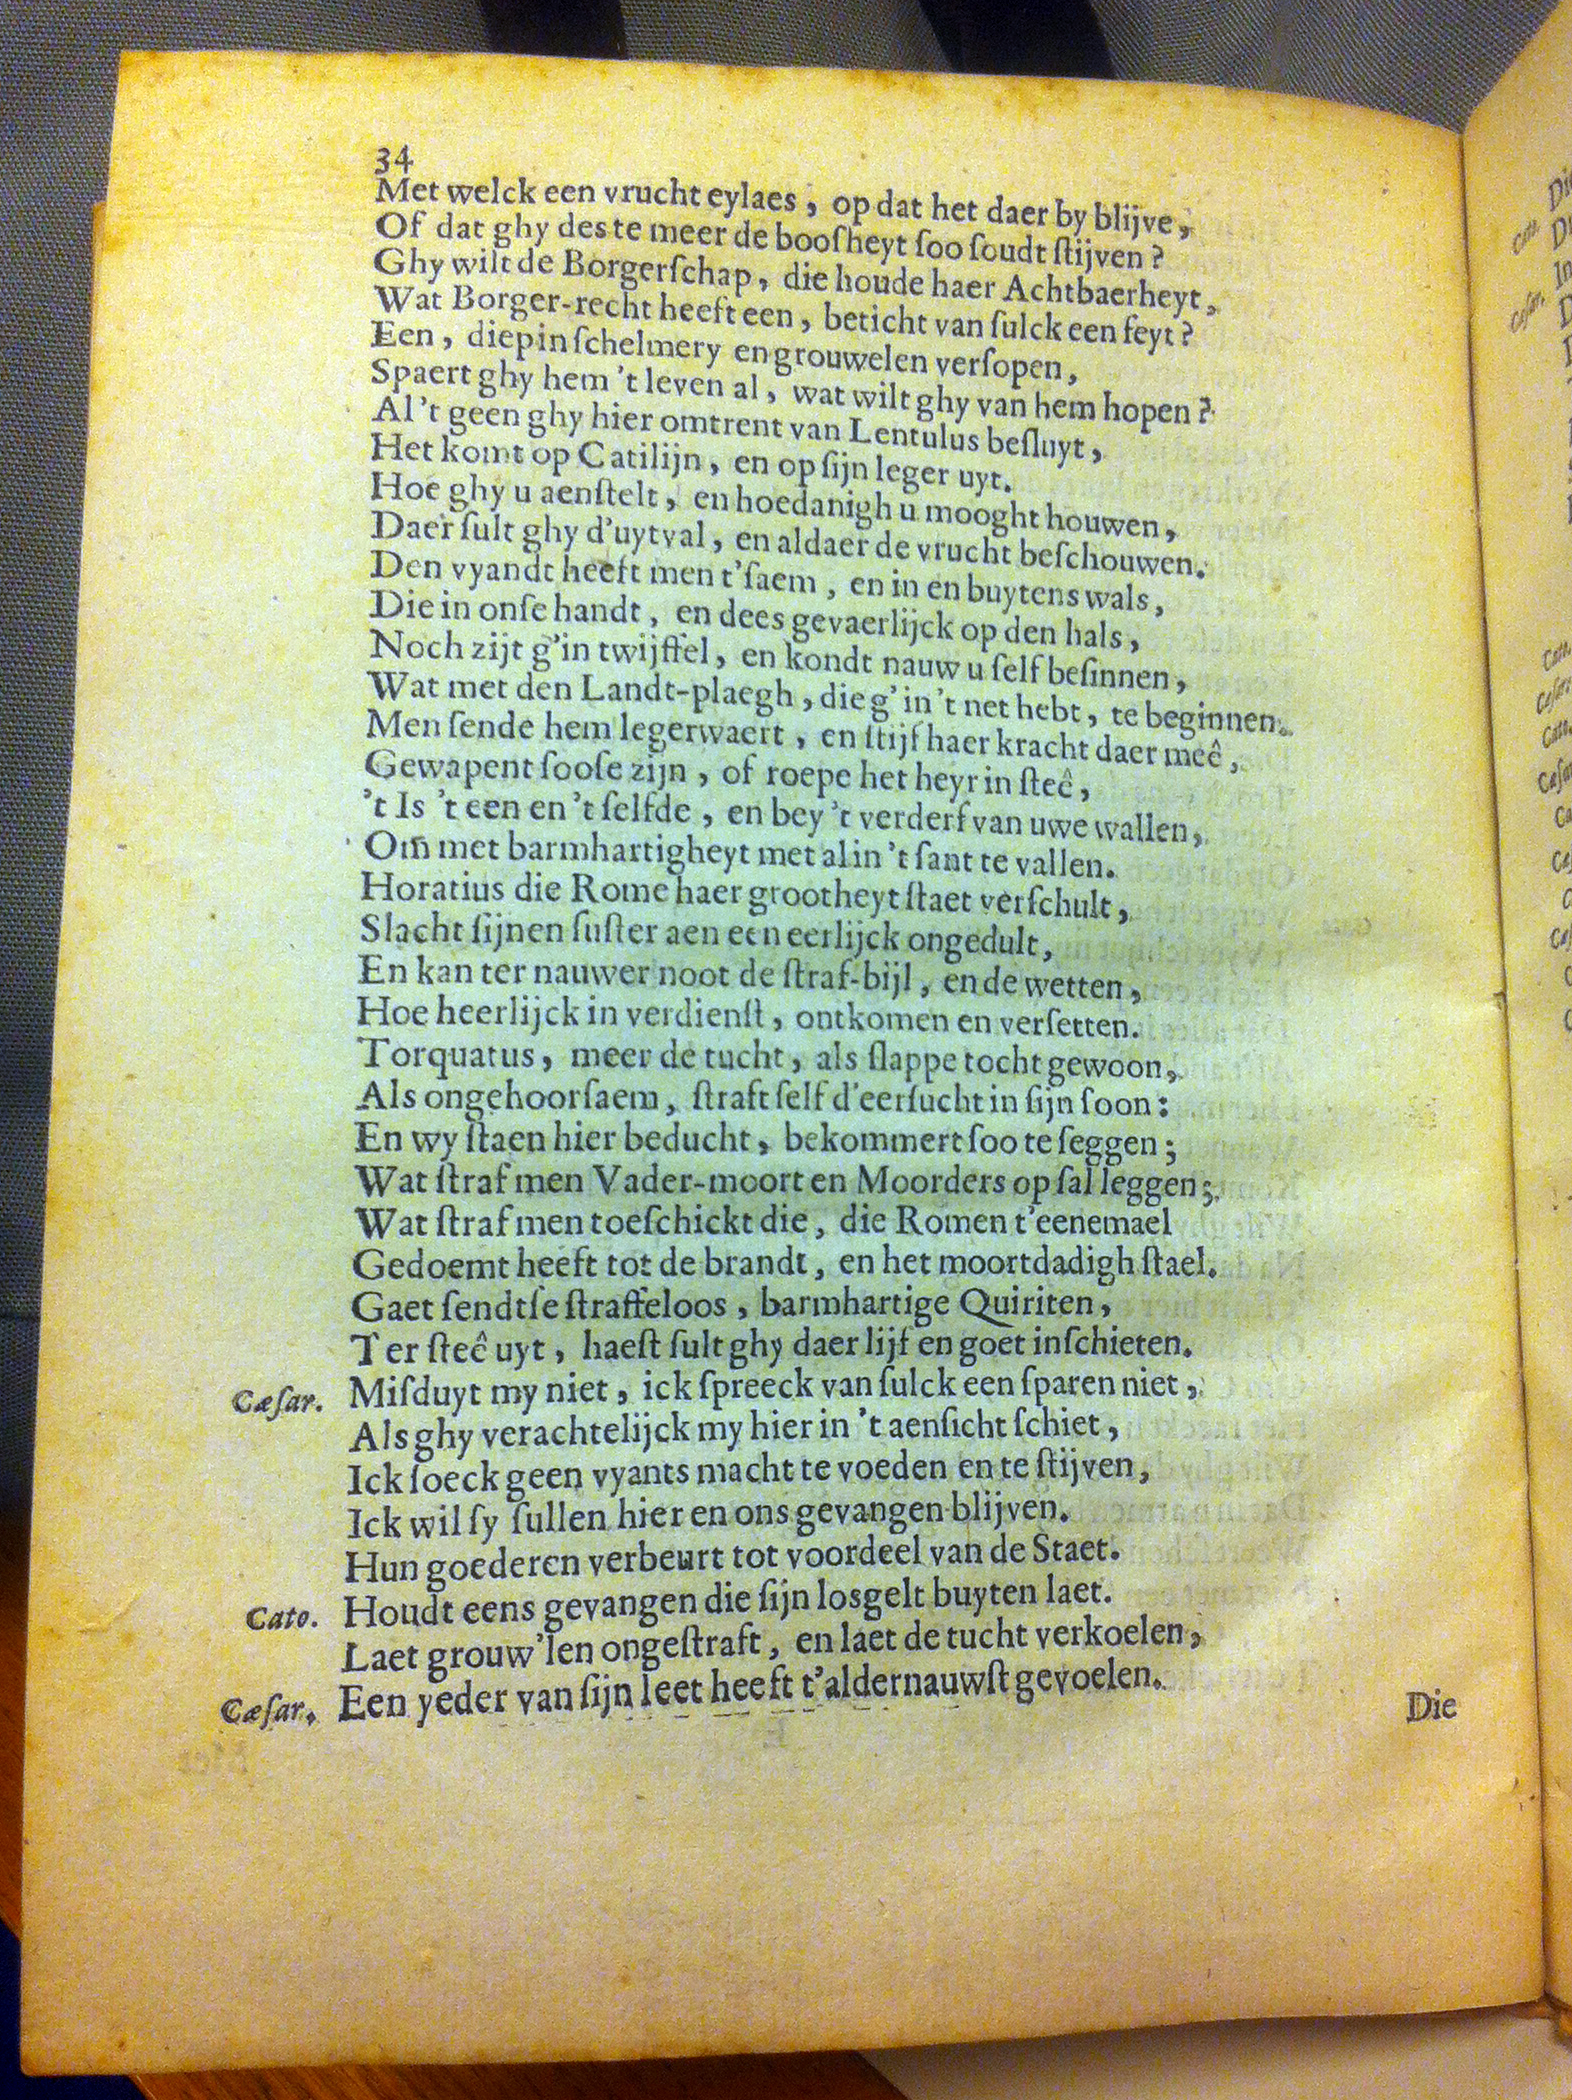 34
Met welck een vrucht eylaes, op dat het daer by blijve,
Of dat ghy des te meer de booſheyt ſoo ſoudt ſtijven?
Ghy wilt de Borgerſchap, die houde haer Achtbaerheyt,
Wat Borger-recht heeft een, beticht van ſulck een feyt?
Een, diep in ſchelmery en grouwelen verſopen,
Spaert ghy hem 't leven al, wat wilt ghy van hem hopen?
Al 't geen ghy hier omtrent van Lentulus beſluyt,
Het komt op Catilijn, en op ſijn leger uyt.
Hoe ghy u aenſtelt, en hoedanigh u mooght houwen,
Daer ſult ghy d'uytval, en aldaer de vrucht beſchouwen.
Den vyandt heeft men t'ſaem, en in en buytens wals,
Die in onſe handt, en dees gevaerlijck op den hals,
Noch zijt g'in twijffel, en kondt nauw u ſelf beſinnen,
Wat met den Landt-plaegh, die g' in 't net hebt, te beginnen.
Men ſende hem legerwaert, en ſtijf haer kracht daer meê,
Gewapent ſooſe zijn, of roepe het heyr in ſteê,
't Is 't een en 't ſelfde, en bey 't verderf van uwe wallen,
Om̃ met barmhartigheyt met al in 't ſant te vallen.
Horatius die Rome haer grootheyt ſtaet verſchult,
Slacht ſijnen ſuſter aen een eerlijck ongedult,
En kan ter nauwer noot de ſtraf-bijl, en de wetten,
Hoe heerlijck in verdienſt, ontkomen en verſetten.
Torquatus, meer de tucht, als ſlappe tocht gewoon,
Als ongehoorſaem, ſtraft ſelf d'eerſucht in ſijn ſoon:
En wy ſtaen hier beducht, bekommert ſoo te ſeggen;
Wat ſtraf men Vader-moort en Moorders op ſal leggen;
Wat ſtraf men toeſchickt die, die Romen t'eenemael
Gedoemt heeft tot de brandt, en het moortdadigh ſtael.
Gaet ſendtſe ſtraffeloos, barmhartige Quiriten,
Ter ſteê uyt, haeſt ſult ghy daer lijf en goet inſchieten.
Cæſar. Miſduyt my niet, ick ſpreeck van ſulck een ſparen niet,
Als ghy verachtelijck my hier in 't aenſicht ſchiet,
Ick ſoeck geen vyants macht te voeden en te ſtijven,
Ick wil ſy ſullen hier en ons gevangen blijven.
Hun goederen verbeurt tot voordeel van de Staet.
Cato. Houdt eens gevangen die ſijn losgelt buyten laet.
Laet grouw'len ongeſtraft, en laet de tucht verkoelen,
Cæſar. Een yeder van ſijn leet heeft t'aldernauwſt gevoelen.
Die